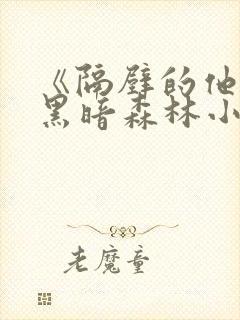 《隔壁的他
黑暗森林小
老魔童